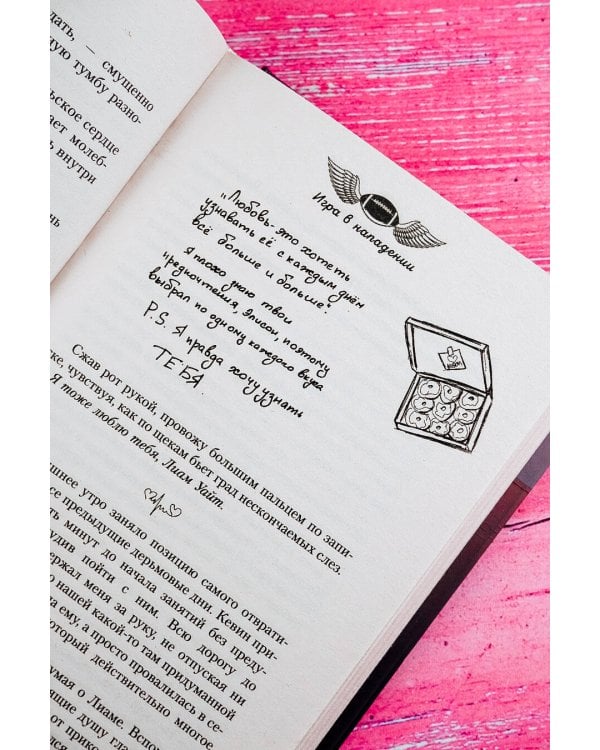 дать, – смущенно
ную тумбу разно-
ьское сердце
ает молеб-
ь внутри
нь
Игра в нападении
„Любовь-это хотеть
узнавать её с каждым днём
всё больше и больше".
Я плохо знаю твои
предпочтения, Элисон, поэтому
выбрал по одному каждого вкуса
P.S. Я правда хочу узнать
ТЕБЯ
Сжав рот рукой, провожу большим пальцем по запи-
ке, чувствуя, как по щекам бьет град нескончаемых слез.
Я тоже люблю тебя, Лиам Уайт.
шнее утро заняло позицию самого отврати-
се предыдущие дерьмовые дни. Кевин при-
ть минут до начала занятий без преду-
удив пойти с ним. Всю дорогу до
ержал меня за руку, не отпуская ни
о нашей какой-то там придуманной
а ему, а просто провалилась в се-
который действительно многое
умая о Лиаме. Вспом
ящие душу гла
от прико